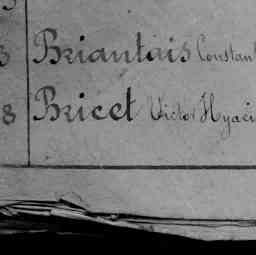 3 Briantais Constant
8 Bricet Victor Hyaci